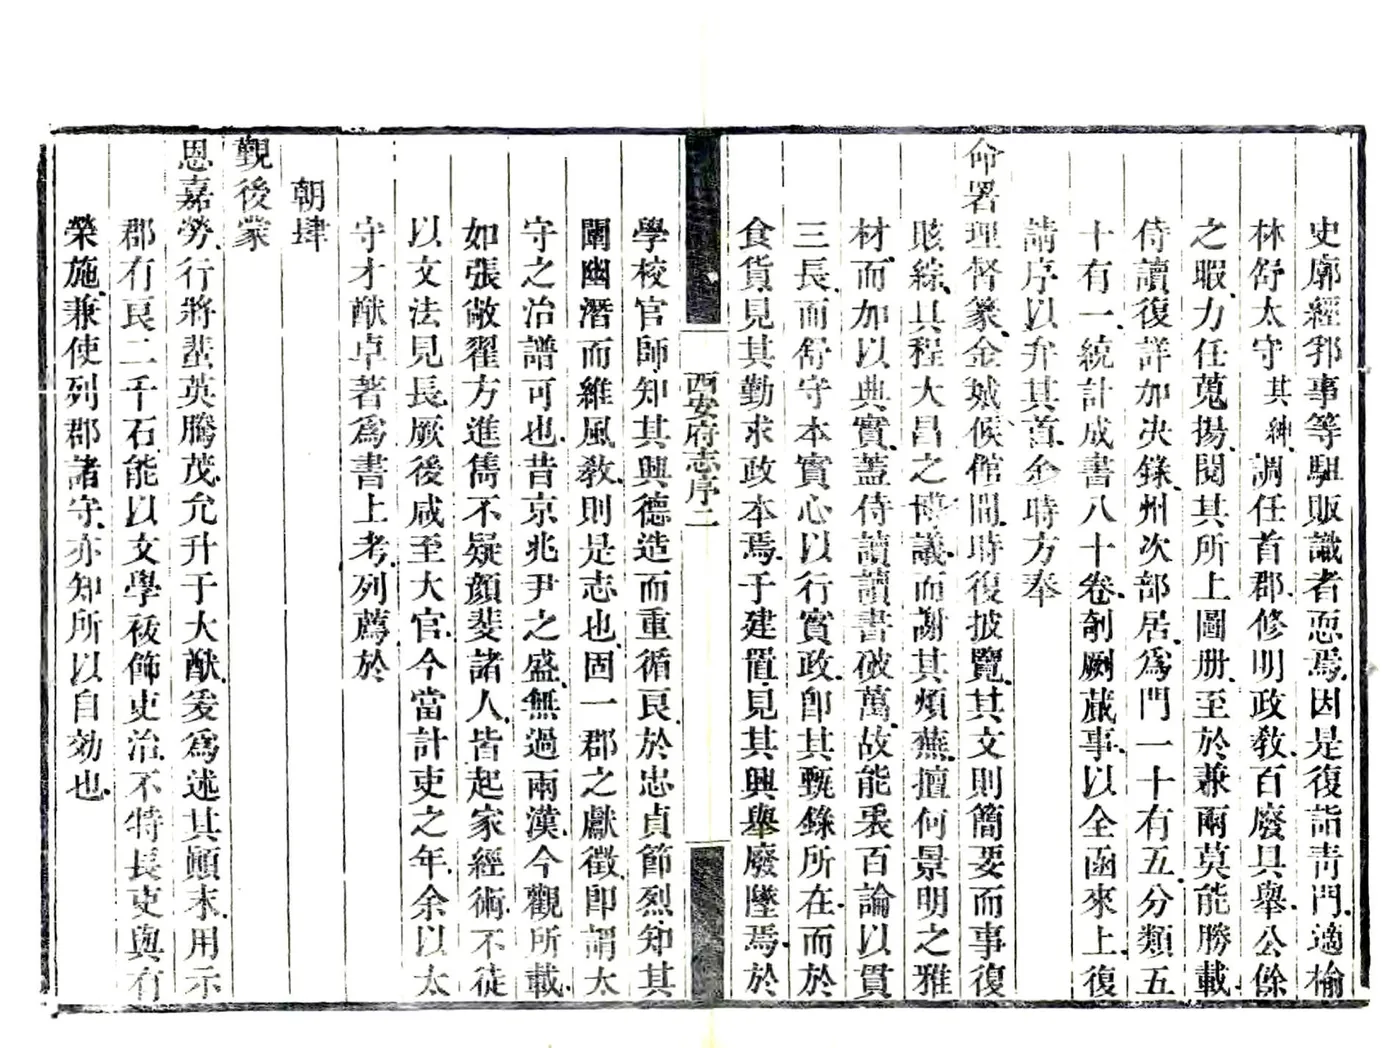 史廓經邦事等駔販識者恧焉因是復詣靑門適榆
林舒太守其紳調任首郡修明政敎百廢具舉公餘
之暇力任蒐揚閱其所上圖册至於兼兩莫能勝載
侍讀復詳加决錄州次部居爲門一十有五分類五
十有一統計成書八十卷剞劂蕆事以全函來上復
請序以弁其首余時方奉
命署理督篆金城候館間時復披覽其文則簡要而事復
賅綜具程大昌之博議而謝其煩蕪擅何景明之雅
材而加以典實蓋侍讀讀書破萬故能裘百論以貫
三長而舒守本實心以行實政卽其甄錄所在而於
食貨見其勤求政本焉于建置見其興舉廢墜焉於
西安府志序二
學校官師知其興德造而重循良於忠貞節烈知其
闡幽潛而維風敎則是志也固一郡之獻徵卽謂太
守之治譜可也昔京兆尹之盛無過兩漢今觀所載
如張敞翟方進雋不疑顔斐諸人皆起家經術不徒
以文法見長厥後咸至大官今當計吏之年余以太
守才猷卓著爲書上考列薦於
朝肆
覲後蒙
恩嘉勞行將蜚英騰茂允升于大猷爰爲述其顚末用示
郡有良二千石能以文學祓飾吏治不特長吏與有
榮施兼使列郡諸守亦知所以自効也